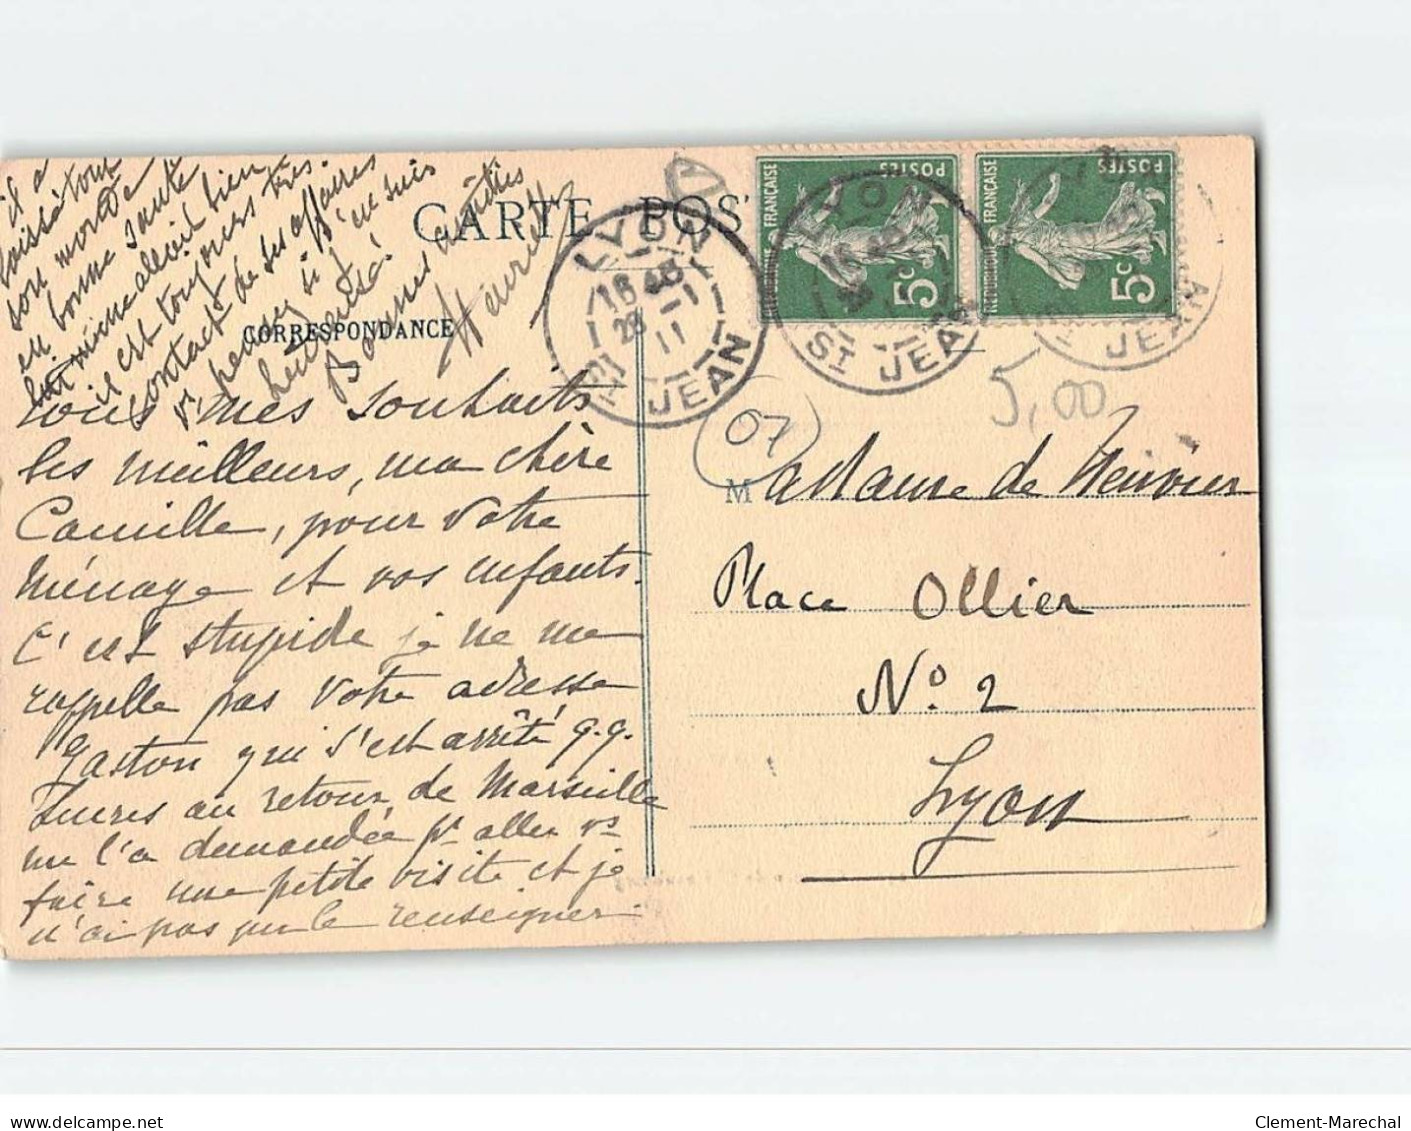 CARTE POS
CORRESPONDANCE
LYON
16 45
28 - 1
11
ST JEAN
LYON
ST JEAN
JEAN
RÉPUBLIQUE FRANÇAISE
POSTES
5c
RÉPUBLIQUE FRANÇAISE
POSTES
5c
5,00
07
Madame de
Place Ollier
No. 2
Lyon
Tous mes souhaits
les meilleurs, ma chère
Camille, pour votre
ménage et vos enfants.
C'est stupide je ne me
rappelle pas votre adresse
Gaston qui s'est arrêté q.q.
heures au retour de Marseille
me l'a demandée pr aller vs
faire une petite visite et je
n'ai pas pu le renseigner.
il a
laissé tout
son monde
en bonne santé
lui même allait bien
il est toujours très
content de ses affaires
vs pensez si j'en suis
heureuse.
Bonnes amitiés
Henriette
delcampe.net
Clement-Marechal